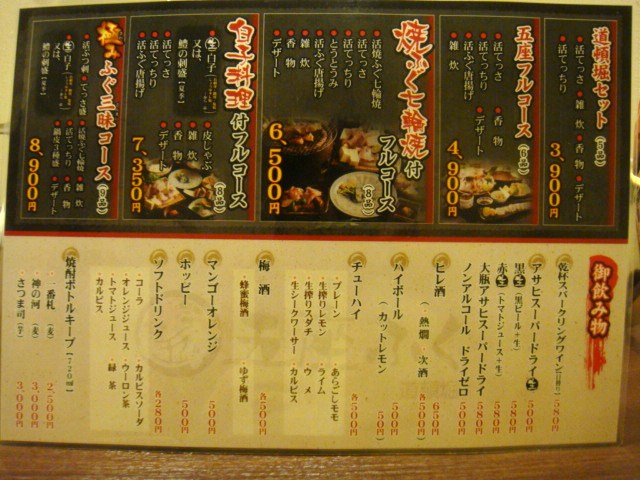 道頓堀セット(5品)
活てっさ
活てっちり
雑炊
香物
デザート
3,900円
五座フルコース(6品)
活てっさ
活てっちり
活ふぐ唐揚げ
雑炊
香物
デザート
4,900円
焼ふぐ七輪焼付フルコース(8品)
活焼ふぐ七輪焼
活てっさ
とうとうみ
活てっちり
活ふぐ唐揚げ
雑炊
香物
デザート
6,500円
白子料理付フルコース(8品)
生白子
又は、
鱧の刺盛(夏季)
皮しゃぶ
活てっさ
活てっちり
活ふぐ唐揚げ
雑炊
香物
デザート
7,350円
極みふぐ三昧コース(9品)
活ぶつ刺
てっさ盛
生白子
又は、
鱧の刺盛(夏季)
活焼ふぐ七輪焼
活てっちり
活ふぐ唐揚げ
鍋皮3種盛
雑炊
香物
デザート
8,900円
御飲み物
乾杯スパークリングワイン 580円
アサヒスーパードライ生 500円
黒生(黒ビール+生) 580円
赤生(トマトジュース+生) 580円
大瓶アサヒスーパードライ 580円
ノンアルコール ドライゼロ 450円
ヒレ酒 650円
(熱燗 次酒 各500円)
ハイボール 500円
(カットレモン 50円)
チューハイ 各500円
・プレーン ・あらごしモモ
・生搾りレモン ・ライム
・生搾りスダチ ・ウメ
・生シークワーサー ・カルピス
梅酒 各500円
・蜂蜜梅酒 ・ゆず梅酒
マンゴーオレンジ 500円
ホッピー 500円
ソフトドリンク 各280円
・コーラ ・カルピスソーダ
・オレンジジュース ・ウーロン茶
・トマトジュース ・緑茶
・カルピス
焼酎ボトルキープ(720ml)
・一番札(麦) 2,500円
・神の河(麦) 3,000円
・さつま司(芋) 3,000円